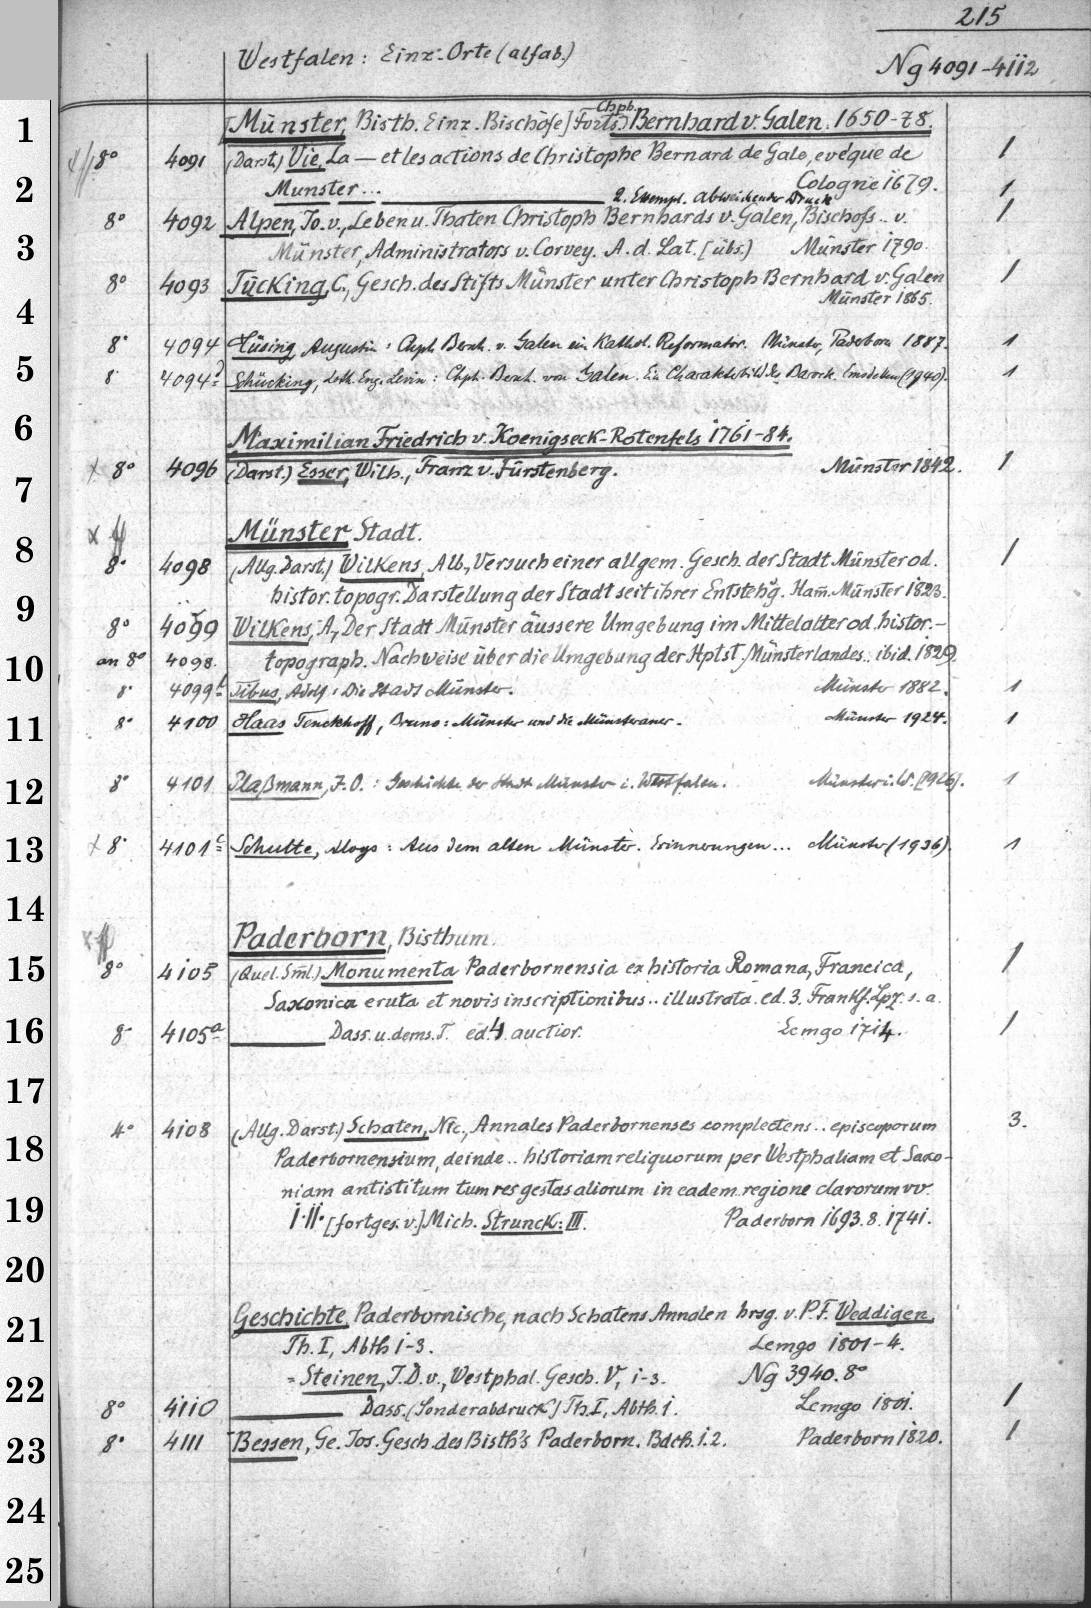 215
Westfalen: Einz-Orte (alfab.)
Ng 4091-4112
1
[Münster, Bisth. Einz. Bischöfe] Forts.) Chph. Bernhard v. Galen. 1650-78.
8° 4091 (Darst.) Vie, La — et les actions de Christophe Bernard de Gale, evéque de 1
2
Munster... Cologne 1679.
2. Exempl. abweichender Druck 1
8° 4092 Alpen, Jo. v., Leben u. Thaten Christoph Bernhards v. Galen, Bischofs .. v. 1
3
Münster, Administrators v. Corvey. A. d. Lat. [übs.) Münster 1790.
8° 4093 Tücking, C., Gesch. des Stifts Münster unter Christoph Bernhard v. Galen 1
4
Münster 1865.
8° 4094 Hüsing, Augustin: Chph. Bernh. v. Galen ein kathol. Reformator. Münster, Paderborn 1887. 1
5
8° 4094a Schücking, Loth. Eng. Levin: Chph. Bernh. von Galen. Ein Charakterbild des Barock. Emsdetten (1940). 1
6
Maximilian Friedrich v. Koenigseck-Rotenfels 1761-84.
x 8° 4096 (Darst.) Esser, Wilh., Franz v. Fürstenberg. Münster 1842. 1
7
x
Münster Stadt.
8
8° 4098 (Allg. Darst.) Wilkens, Alb., Versuch einer allgem. Gesch. der Stadt Münster od. 1
9
histor. topogr. Darstellung der Stadt seit ihrer Entstehg. Ham̄. Münster 1823.
8° 4099 Wilkens, A., Der Stadt Münster äussere Umgebung im Mittelalter od. histor.-
10
an 8° 4098. topograph. Nachweise über die Umgebung der Hptst. Münsterlandes.. ibid. 1829.
8° 4099b Tibus, Adolf: Die Stadt Münster. Münster 1882. 1
11
8° 4100 Haas Tenckhoff, Bruno: Münster und die Münsteraner. Münster 1924. 1
12
8° 4101 Plaßmann, J. O.: Geschichte der Stadt Münster i. Westfalen. Münster i. W. [1926). 1
13
x 8° 4101c Schulte, Aloys: Aus dem alten Münster. Erinnerungen... Münster (1936). 1
14
x
Paderborn, Bisthum.
15
8° 4105 (Quel. Sml.) Monumenta Paderbornensia ex historia Romana, Francica, 1
Saxonica eruta et novis inscriptionibus .. illustrata. ed. 3. Frankf. Lpz. s. a.
16
8° 4105a Dass. u. dems. T. ed. 4. auctior. Lemgo 1714. 1
17
4° 4108 (Allg. Darst.) Schaten, Nic., Annales Paderbornenses complectens .. episcoporum 3.
18
Paderbornensium, deinde .. historiam reliquorum per Westphaliam et Saxo-
niam antistitum tum res gestas aliorum in eadem regione clarorum vv.
19
I.II. [fortges. v.] Mich. Strunck: III. Paderborn 1693. 8. 1741.
20
Geschichte, Paderbornische, nach Schatens Annalen hrsg. v. P. F. Weddigen,
21
Th. I, Abth 1-3. Lemgo 1801-4.
= Steinen, J. D. v., Westphal. Gesch. V, 1-3. Ng 3940. 8°
22
8° 4110 Dass. (Sonderabdruck) Th. I, Abth. 1. Lemgo 1801. 1
23
8° 4111 Bessen, Ge. Jos. Gesch. des Bisth's Paderborn. Bdch. 1.2. Paderborn 1820. 1
24
25